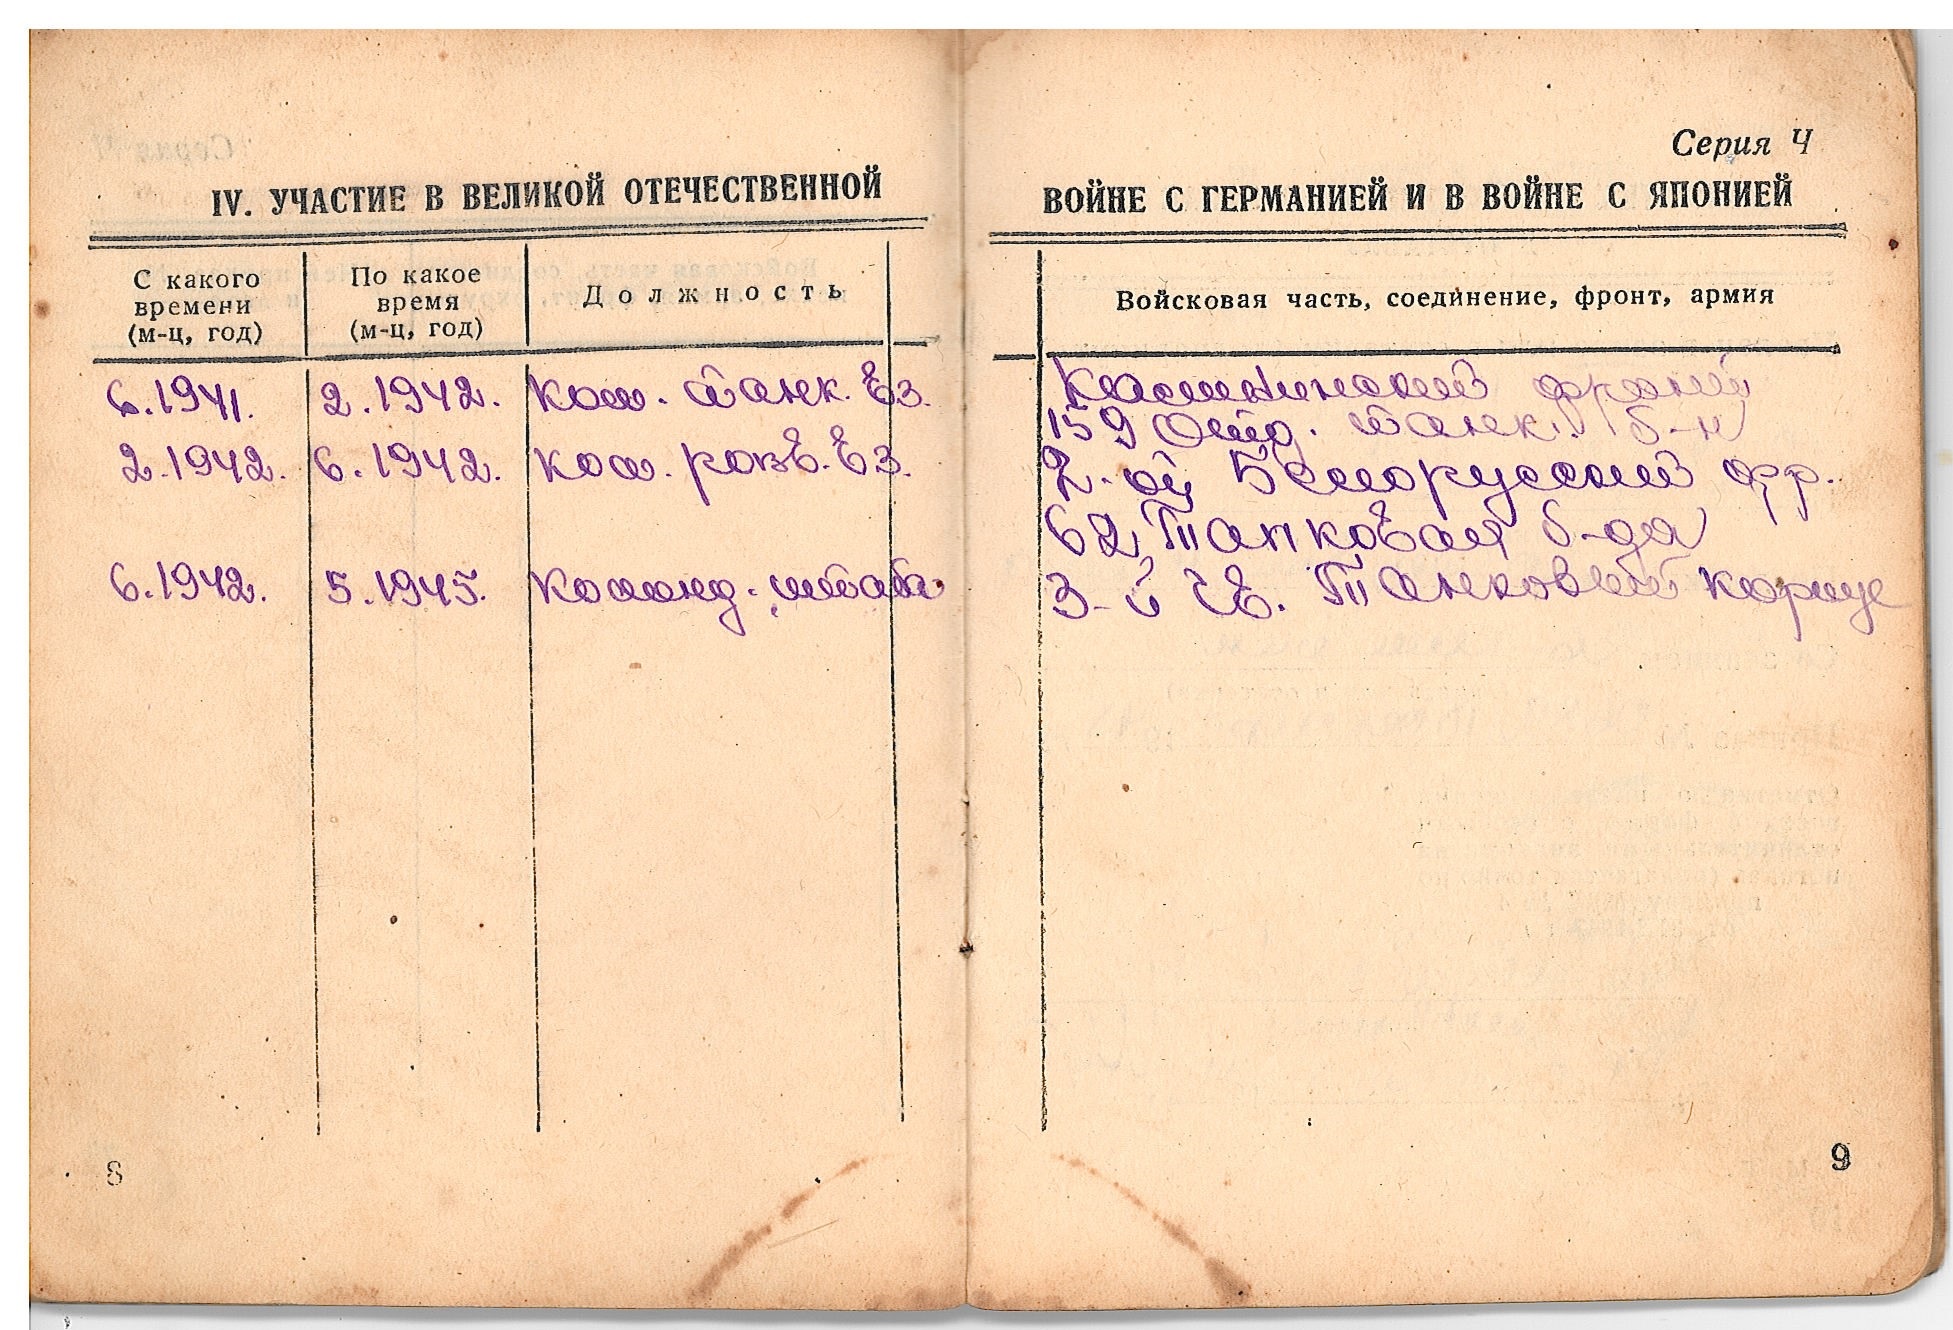 Серия Ч
IV. УЧАСТИЕ В ВЕЛИКОЙ ОТЕЧЕСТВЕННОЙ ВОЙНЕ С ГЕРМАНИЕЙ И В ВОЙНЕ С ЯПОНИЕЙ
С какого
времени
(м-ц, год)
По какое
время
(м-ц, год)
Должность
Войсковая часть, соединение, фронт, армия
6.1941. 2.1942. Ком. танк. вз. Калининский фронт
159 отд. танк. б-н
2.1942. 6.1942. ком. разв. вз. 2-ой Белорусский фр.
62 Танковая б-да
6.1942. 5.1945. Команд. штаба 3-й гв. Танковый корпус
8
9